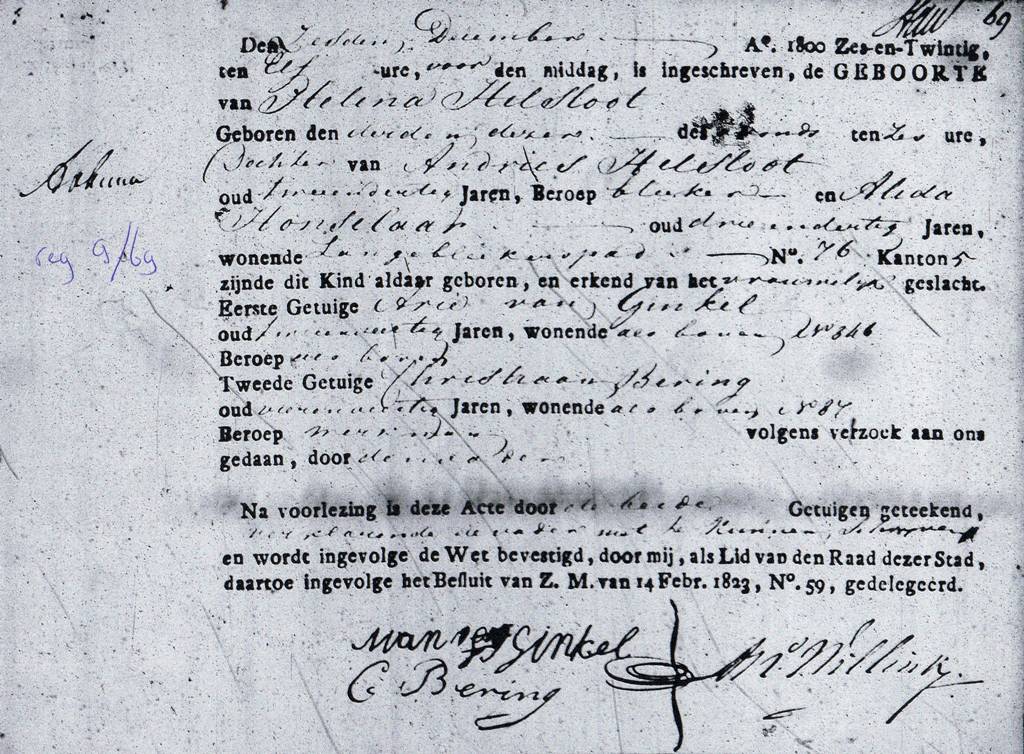 69
Den Zesden December A°. 1800 Zes-en-Twintig,
ten Elf ure, voor den middag, is ingeschreven, de GEBOORTE
van Helena Helsloot
Geboren den derden dezer des ten Zes ure,
Dochter van Andries Helsloot
oud tweeendertig Jaren, Beroep bleeker en Alida
Honselaar oud drieendertig Jaren,
wonende Langebleekerspad N°. 76 Kanton 5
zijnde dit Kind aldaar geboren, en erkend van het vrouwelijk geslacht.
reg 9/69
Eerste Getuige Arie van Ginkel
oud Jaren, wonende als boven N° 346
Beroep als boven
Tweede Getuige Christiaan Bering
oud Jaren, wonende als boven N° 87
Beroep werkman volgens verzoek aan ons
gedaan, door den vader
Na voorlezing is deze Acte door de beide Getuigen geteekend,
verklarende de vader niet te kunnen schrijven
en wordt ingevolge de Wet bevestigd, door mij, als Lid van den Raad dezer Stad,
daartoe ingevolge het Besluit van Z. M. van 14 Febr. 1823, N°. 59, gedelegeerd.
van Ginkel
C Bering
Willink